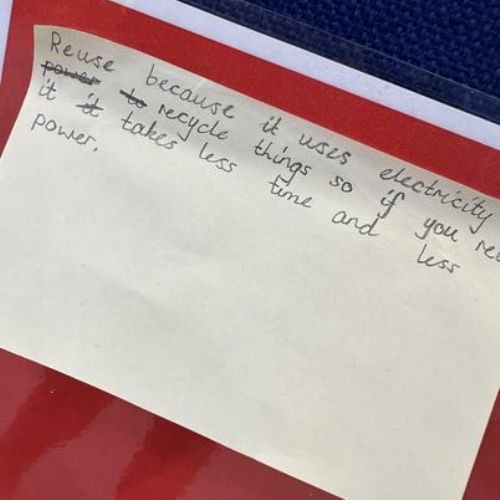 Reuse because it uses electricity
power to recycle things so if you reu
it it takes less time and less
power.